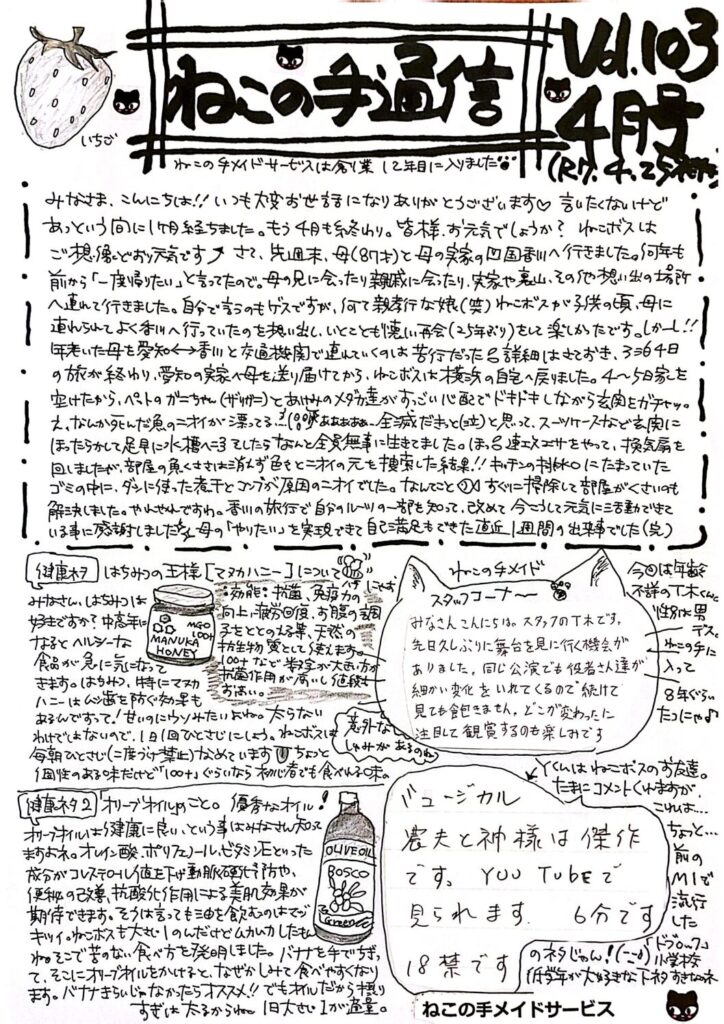 ねこの手通信
Vol.103
4月号
(R7.4.25発行)
いちご
ねこの手メイドサービスは創業12年目に入りました
みなさま、こんにちは!! いつも大変お世話になりありがとうございます♡ 言いたくないけど
あっという間に1ヶ月経ちました。もう4月も終わり。皆様、お元気でしょうか? ねこボスは
ご想像どおり元気です さて、先週末、母(87才)と母の実家の四国香川へ行きました。何年も
前から「一度帰りたい」と言ってたので。母の兄に会ったり親戚に会ったり、実家や裏山、その他想い出の場所
へ連れて行きました。自分で言うのもゲスですが、何て親孝行な娘(笑) ねこボスが子供の頃、母に
連れられてよく香川へ行っていたのを想い出し、いとことも懐しい再会(25年おり)をして楽しかったです。しかーし!!
年老いた母を愛知⟷香川と交通機関で連れていくのは苦行だった 詳細はさておき、3泊4日
の旅が終わり、愛知の実家へ母を送り届けてから、ねこボスは横浜の自宅へ戻りました。4〜5日家を
空けたから、ペットのガーちゃん(ザリガニ)とあけみのメダカ達がすっごい心配でドキドキしながら玄関をガチャッ。
え、なんか死んだ魚のニオイが漂ってる…! 全滅だきっと(泣)と思って、スーツケースなど玄関に
ほったらかして足早に水槽へ。そしたらなんと全員無事に生きてました。ほっ 速エスエサをやって、換気扇を
回しましたが、部屋の魚くささは消えず色々とニオイの元を捜索した結果!! キッチンの排水口にたまっていた
ゴミの中に、ダシに使った煮干とコンブが原因のニオイでした。なんてこと すぐに掃除して部屋がくさいのも
解決しました。やれやれですわ。香川の旅行で自分のルーツの一部を知って、改めて今こうして元気に活動できて
いる事に感謝しました 母の「やりたい」を実現できて自己満足もできた直近1週間の出来事でした(完)
健康ネタ
はちみつの王様[マヌカハニー]について
みなさん、はちみつは
好きですか? 中高年に
なるとヘルシーな
食品が急に気になって
きます。はちみつ、特にマヌカ
ハニーは虫歯を防ぐ効果も
あるんですって! 甘いのにウソみたいよね。太らない
わけではないので、1日1回ひとさじにしょう。ねこボスは
毎朝ひとさじ(二度づけ禁止)なめています ちょっと
個性のある味だけど"100+"ぐらいなら初心者でも食べれる味。
MGO
100+
MANUKA
HONEY
効能:抗菌、免疫力の
向上に疲労回復、お腹の調
子をととのえる薬、天然の
抗生物質として使えます。
100+など数字が大きい方が
抗菌作用が高いし値段も
お高い。
ねこの手メイド
スタッフコーナ〜
みなさんこんにちは。スタッフのT木です。
先日久しぶりに舞台を見に行く機会が
ありました。同じ公演でも役者さん達が
細かい変化をいれてくるので続けて
見ても飽きません。どこが変わったに
注目して観賞するのも楽しみです
意外な
しゅみがあるのね
今回は年齢
不詳のT木くん
性別は男
デス
ねこの手に
入って
8年ぐらい
たつにゃ♪
健康ネタ2
オリーブオイルのこと。優秀なオイル!
オリーブオイルは健康に良い、という事はみなさん知って
ますよネ。オレイン酸、ポリフェノール、ビタミンEといった
成分がコレステロール値を下げ動脈硬化予防や、
便秘の改善、抗酸化作用による美肌効果が
期待できます。そうは言っても油を飲むのはマジ
キツイ。ねこボスも大さじ1のんだけどムカムカしたもん
ね。そこで苦のない食べ方を発明しました。バナナを手でちぎっ
て、そこにオリーブオイルをかけると、なぜかしみて食べやすくなり
ます。バナナきらいじゃなかったらオススメ!! でもオイルだから摂り
すぎは太るからね。1日大さじ1が適量。
OLIVE OIL
BOSCO
Green
Yくんはねこボスのお友達。
たまにコメントくれますが、
これは…
ちょっと…
前の
M1で
流行
した
ミュージカル
農夫と神様は傑作
です。YOU TUBEで
見られます 6分です
18禁です
「ドブロック」
のネタじゃん!
小学校
低学年が大好きな下ネタすきなのネ
ねこの手メイドサービス